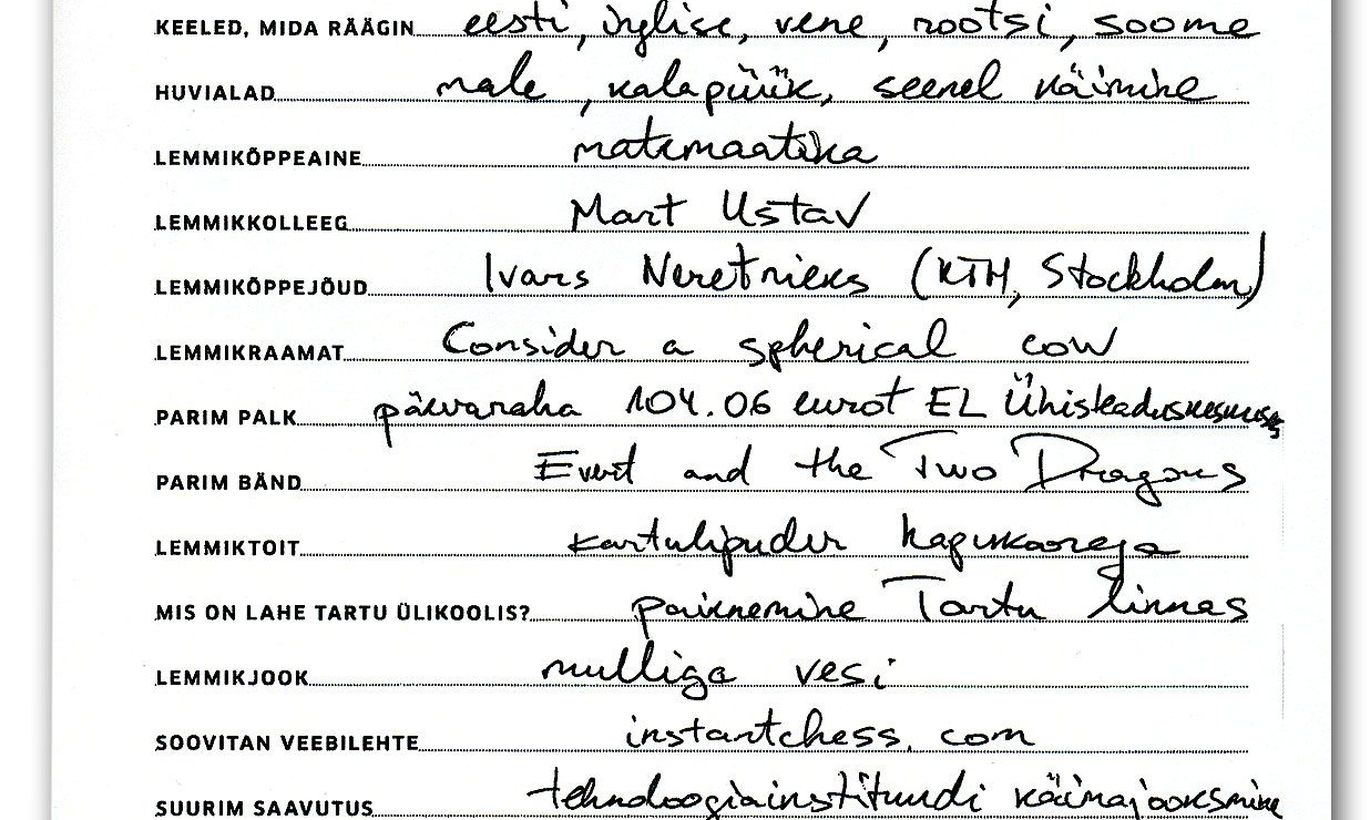 KEELED, MIDA RÄÄGIN eesti, inglise, vene, rootsi, soome
HUVIALAD male, kalapüük, seenel käimine
LEMMIKÕPPEAINE matemaatika
LEMMIKKOLLEEG Mart Ustav
LEMMIKÕPPEJÕUD Ivars Neretnieks (KTH, Stockholm)
LEMMIKRAAMAT Consider a spherical cow
PARIM PALK päevaraha 104.06 eurot EL Ühisteaduskeskuses
PARIM BÄND Ewert and the Two Dragons
LEMMIKTOIT kartulipuder hapukoorega
MIS ON LAHE TARTU ÜLIKOOLIS? paiknemine Tartu linnas
LEMMIKJOOK mulliga vesi
SOOVITAN VEEBILEHTE instantchess.com
SUURIM SAAVUTUS tehnoloogiainstituudi käimajooksmine